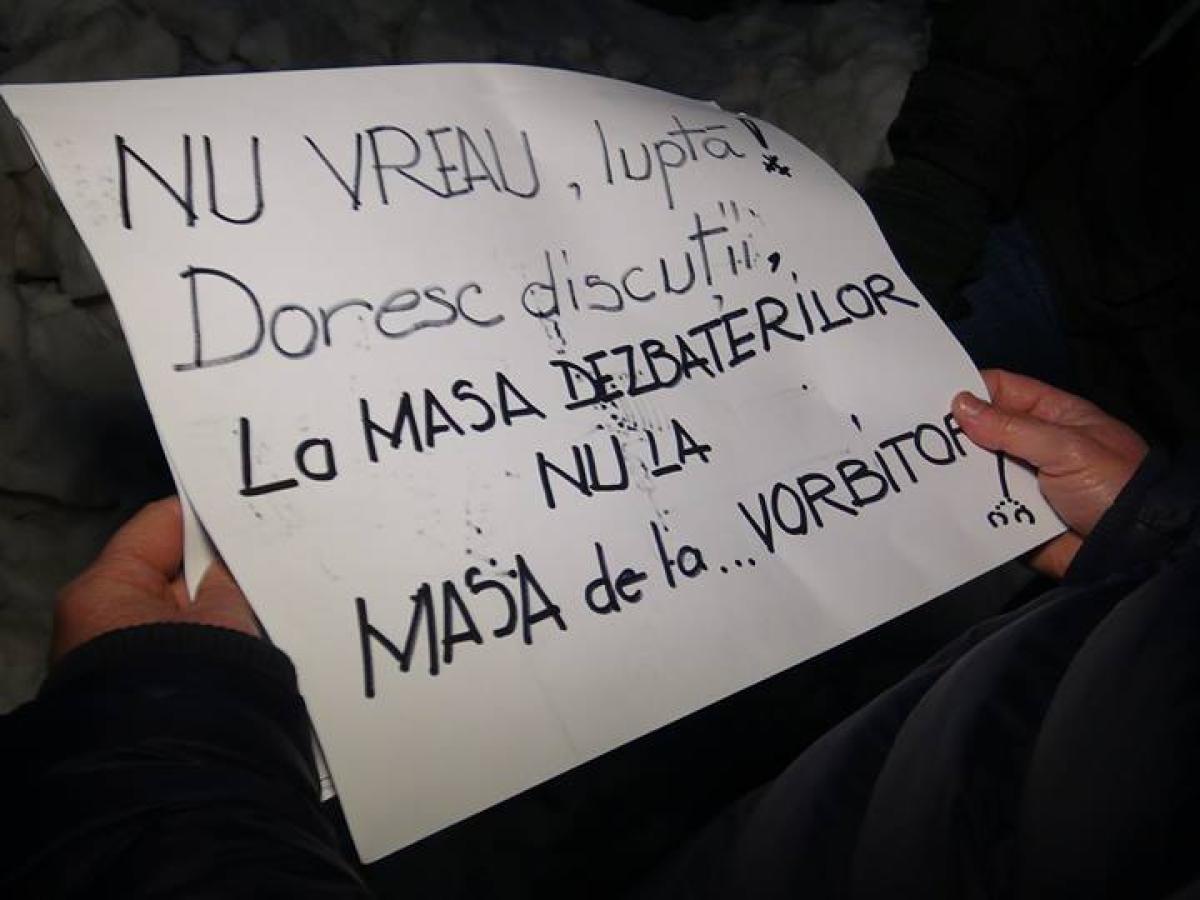 NU VREAU, luptă!
Doresc discuții,
La MASA DEZBATERILOR
NU LA
MASA de la... VORBITOR